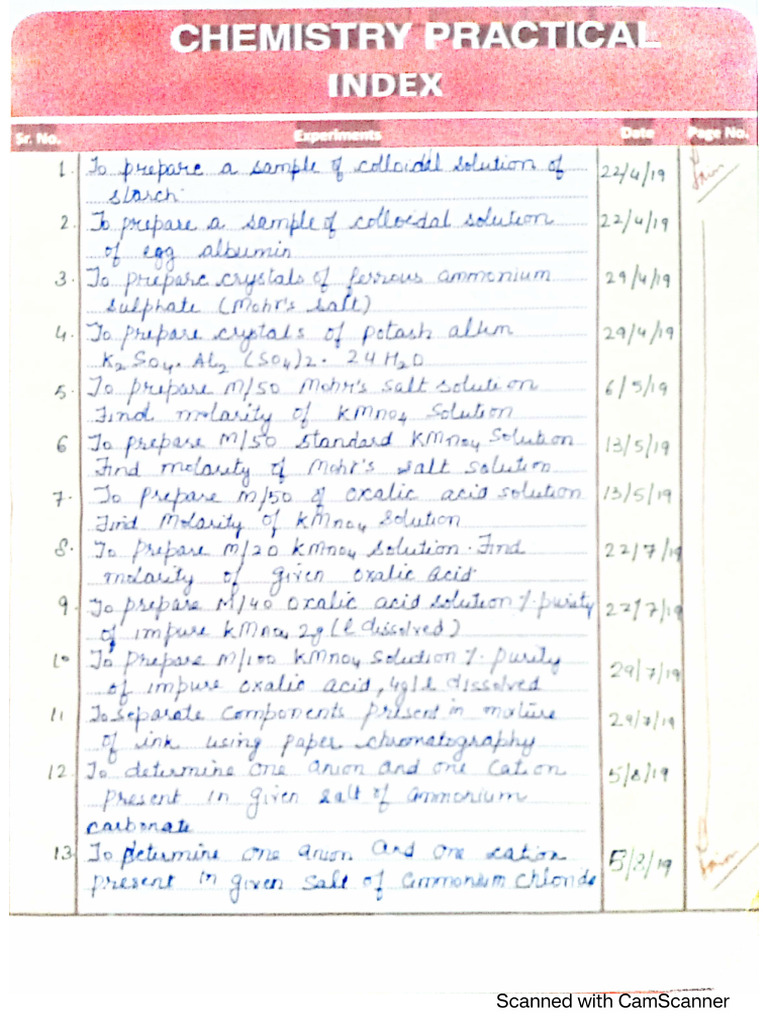 CHEMISTRY PRACTICAL
INDEX
Sr. No. Experiments Date Page No.
1. To prepare a sample of colloidal solution of 22/4/19
starch
2. To prepare a sample of colloidal solution 22/4/19
of egg albumin
3. To prepare crystals of ferrous ammonium 29/4/19
sulphate (Mohr's salt)
4. To prepare crystals of potash alum 29/4/19
K2SO4. Al2 (SO4)2. 24H2O
5. To prepare M/50 Mohr's salt solution 6/5/19
Find molarity of KMnO4 solution
6 To prepare M/50 standard KMnO4 solution 13/5/19
Find molarity of Mohr's salt solution
7. To prepare M/50 of oxalic acid solution 13/5/19
Find Molarity of KMnO4 solution
8. To prepare M/20 KMnO4 solution. Find 22/7/19
molarity of given oxalic acid
9. To prepare M/40 oxalic acid solution % purity 22/7/19
of impure KMnO4 2g (l dissolved)
10 To prepare M/100 KMnO4 solution % purity 29/7/19
of impure oxalic acid, 4g/l dissolved
11 To separate components present in mixture 29/7/19
of ink using paper chromatography
12. To determine one anion and one cation 5/8/19
present in given salt of ammonium
carbonate
13 To determine one anion and one cation 5/8/19
present in given salt of ammonium chloride
Scanned with CamScanner